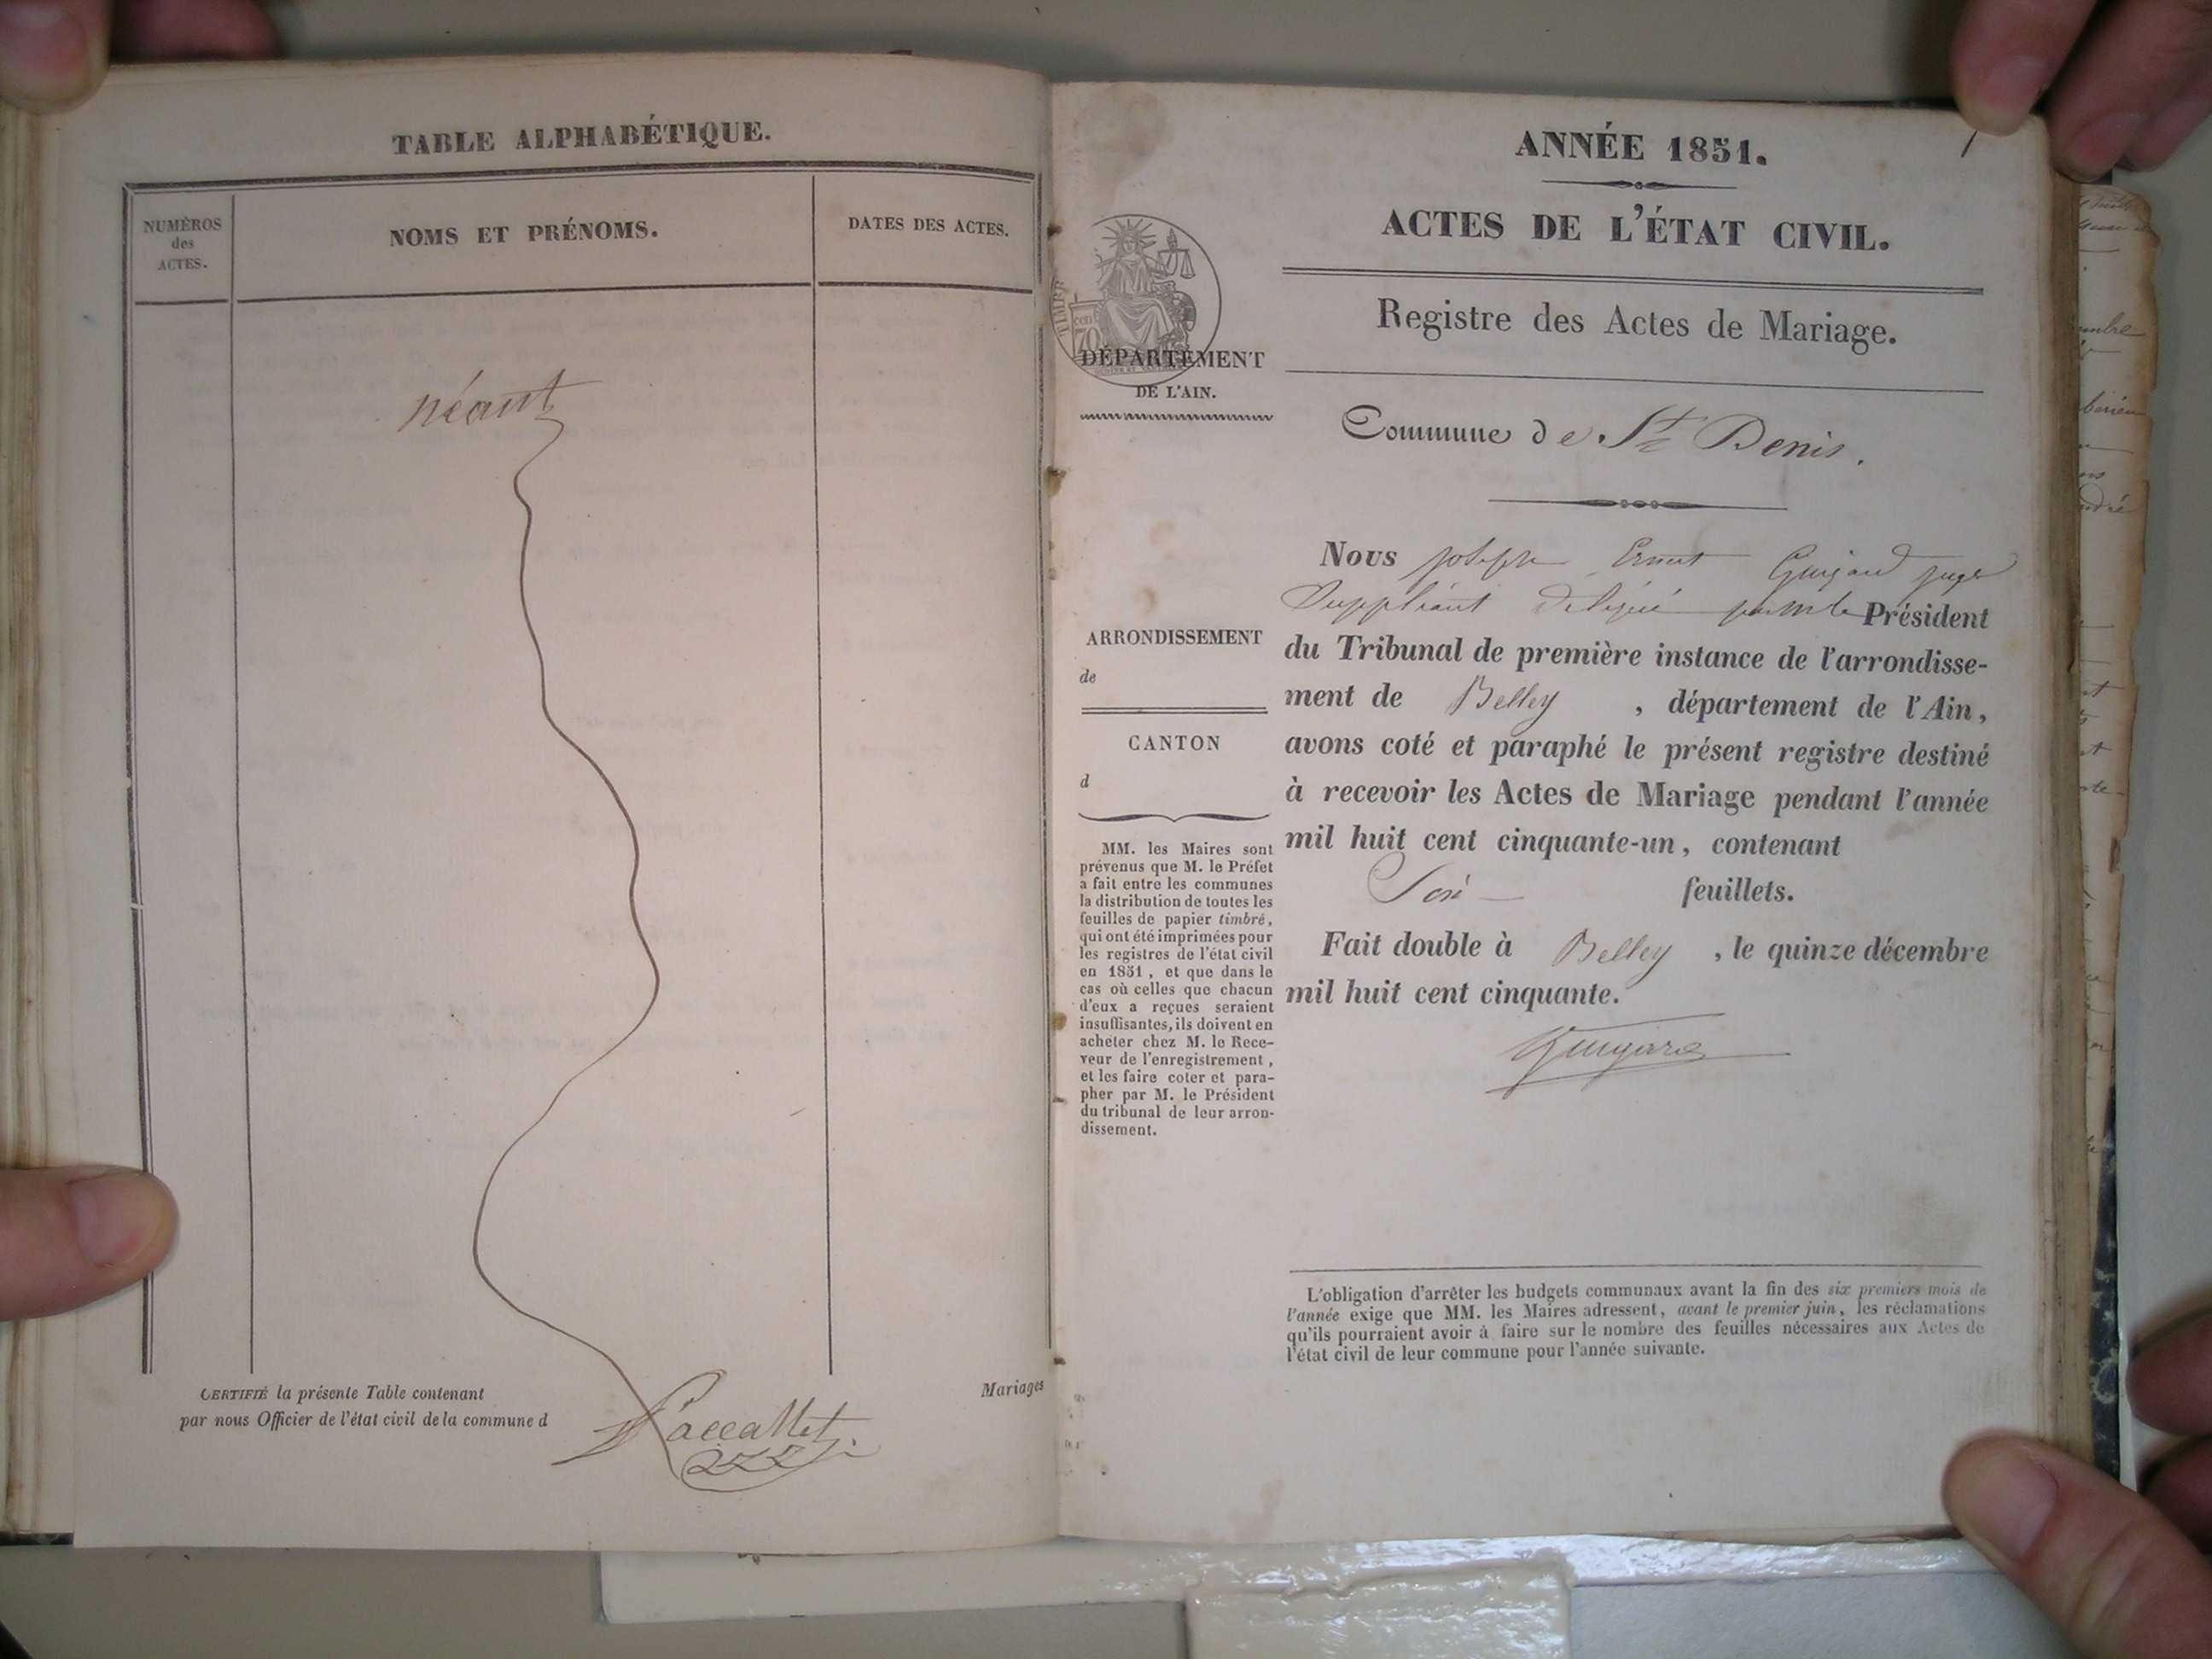 TABLE ALPHABÉTIQUE.
NUMÉROS
des
ACTES.
NOMS ET PRÉNOMS.
DATES DES ACTES.
néant
CERTIFIÉ la présente Table contenant
Mariages
par nous Officier de l'état civil de la commune d
Paccallet
1
ANNÉE 1851.
ACTES DE L'ÉTAT CIVIL.
Registre des Actes de Mariage.
TIMBRE
cen
70
DÉPARTEMENT
DE L'AIN.
Commune de St Denis.
ARRONDISSEMENT
de
CANTON
d
MM. les Maires sont
prévenus que M. le Préfet
a fait entre les communes
la distribution de toutes les
feuilles de papier timbré,
qui ont été imprimées pour
les registres de l'état civil
en 1851, et que dans le
cas où celles que chacun
d'eux a reçues seraient
insuffisantes, ils doivent en
acheter chez M. le Rece-
veur de l'enregistrement,
et les faire coter et para-
pher par M. le Président
du tribunal de leur arron-
dissement.
Nous Joseph Ernest Guigard juge
Suppléant délégué par M le Président
du Tribunal de première instance de l'arrondisse-
ment de Belley , département de l'Ain,
avons coté et paraphé le présent registre destiné
à recevoir les Actes de Mariage pendant l'année
mil huit cent cinquante-un, contenant
feuillets.
Fait double à Belley , le quinze décembre
mil huit cent cinquante.
Guigard
L'obligation d'arrêter les budgets communaux avant la fin des six premiers mois de
l'année exige que MM. les Maires adressent, avant le premier juin, les réclamations
qu'ils pourraient avoir à faire sur le nombre des feuilles nécessaires aux Actes de
l'état civil de leur commune pour l'année suivante.